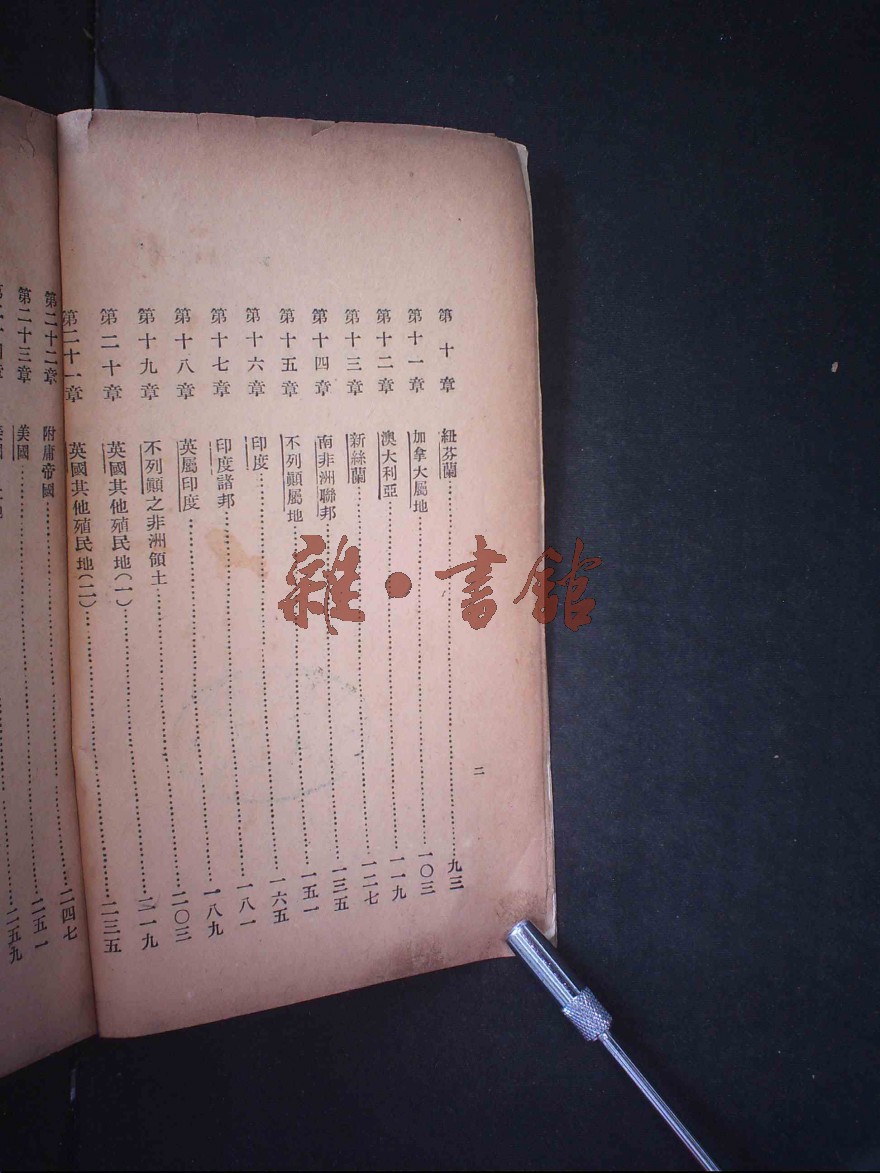 二
第十章 紐芬蘭……九三
第十一章 加拿大屬地……一〇三
第十二章 澳大利亞……一一九
第十三章 新絲蘭……一二七
第十四章 南非洲聯邦……一三五
第十五章 不列顛屬地……一五一
第十六章 印度……一六五
第十七章 印度諸邦……一八一
第十八章 英屬印度……一八九
第十九章 不列顛之非洲領土……二〇三
第二十章 英國其他殖民地（一）……二一九
第二十一章 英國其他殖民地（二）……二三五
第二十二章 附庸帝國……二四七
第二十三章 美國……二五一
二五九
雜·書館